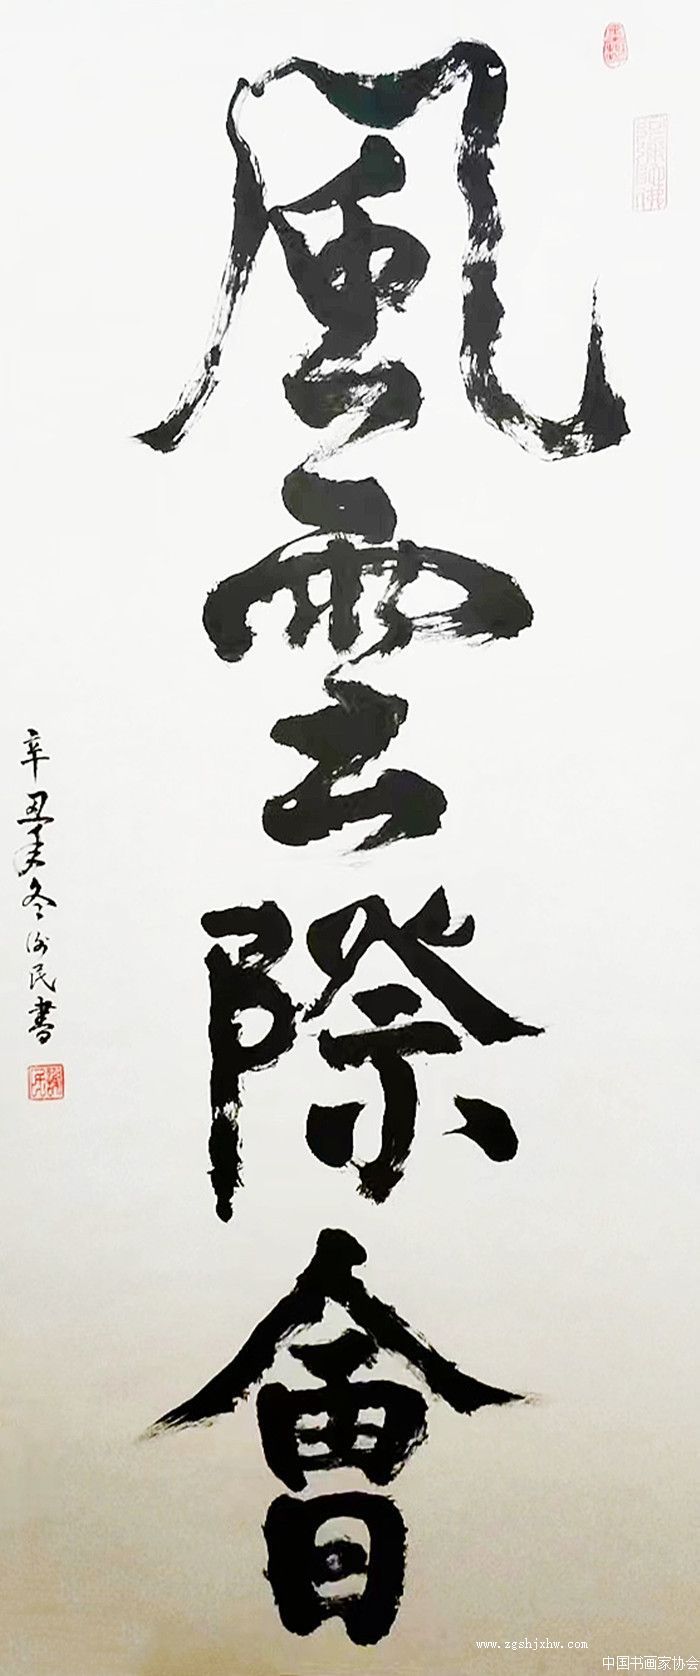 風雲際會
辛丑年冬海民書
www.zgshjxhw.com
中国书画家协会